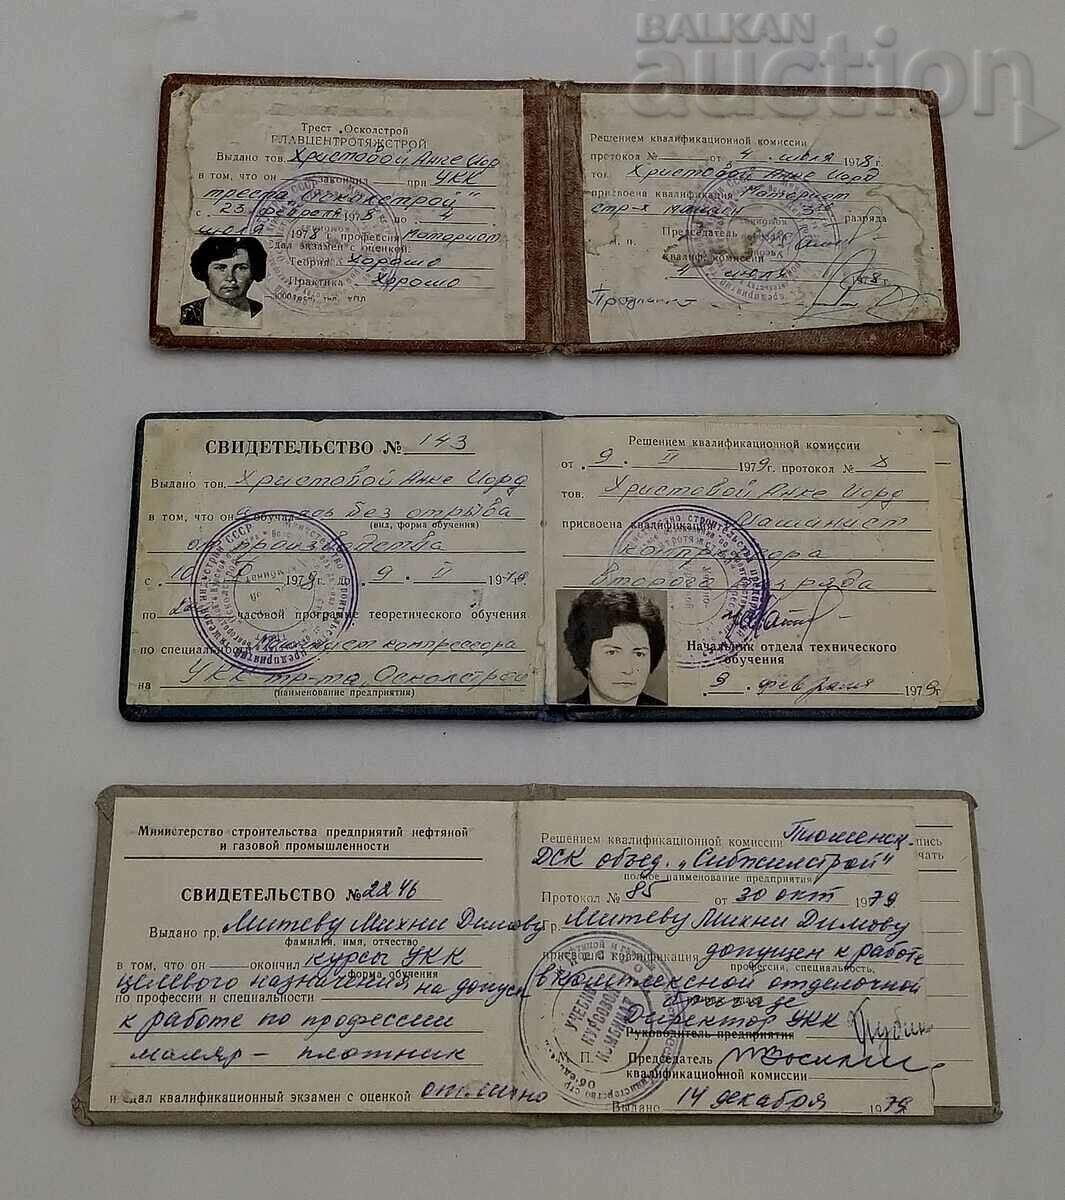 BALKAN
auction
Трест „Осколстрой
ГЛАВЦЕНТРОТЯЖСТРОЙ
Выдано тов. Христовой Анке Иорд
в том, что он закончил при УКК
треста "Осколстрой"
с 23 февраля 1978 по 4
июля 1978 г. профессия Моторист
Сдал экзамен с оценкой:
Теория Хорошо
Практика Хорошо
Решением квалификационной комиссии
протокол № от 4 июля 1978 г.
тов. Христовой Анке Иорд
присвоена квалификация Моторист
стр-х машин 3 разряда
Председатель
М. п.
квалиф. комиссии
4 июля 1978 г.
СВИДЕТЕЛЬСТВО № 143
Выдано тов. Христовой Анке Иорд
в том, что он обучалась без отрыва
(вид, форма обучения)
от производства
с 10 1979 г. до 9. II 1979 г.
по часовой программе теоретического обучения
по специальности Машинист компрессора
на УКК тр-та „Осколстрой"
(наименование предприятия)
Решением квалификационной комиссии
от 9. II 1979 г. протокол № 8
тов. Христовой Анке Иорд
присвоена квалификация Машинист
компрессора
второго разряда
Начальник отдела технического
обучения
9 февраля 1979 г
Министерство строительства предприятий нефтяной
и газовой промышленности
СВИДЕТЕЛЬСТВО № 2246
Выдано гр. Митеву Михни Димову
фамилия, имя, отчество
в том, что он окончил курсы УКК
форма обучения
целевого назначения на допуск
по профессии и специальности
к работе по профессии
маляр - плотник
и сдал квалификационный экзамен с оценкой отлично
Решением квалификационной комиссии Тюменск.
ДСК объед. „Сибжилстрой"
полное наименование предприятия
Протокол № 85 от 30 окт 1979
гр. Митеву Михни Димову
присвоена квалификация допущен к работе
профессия, специальность,
в комплексной отделочной
бригаде
Директор УКК
Руководитель предприятия
М. П. Председатель
квалификационной комиссии
Выдано 14 декабря 1979
УЧЕБНО
КУРСОВОЙ
КОМБИНАТ